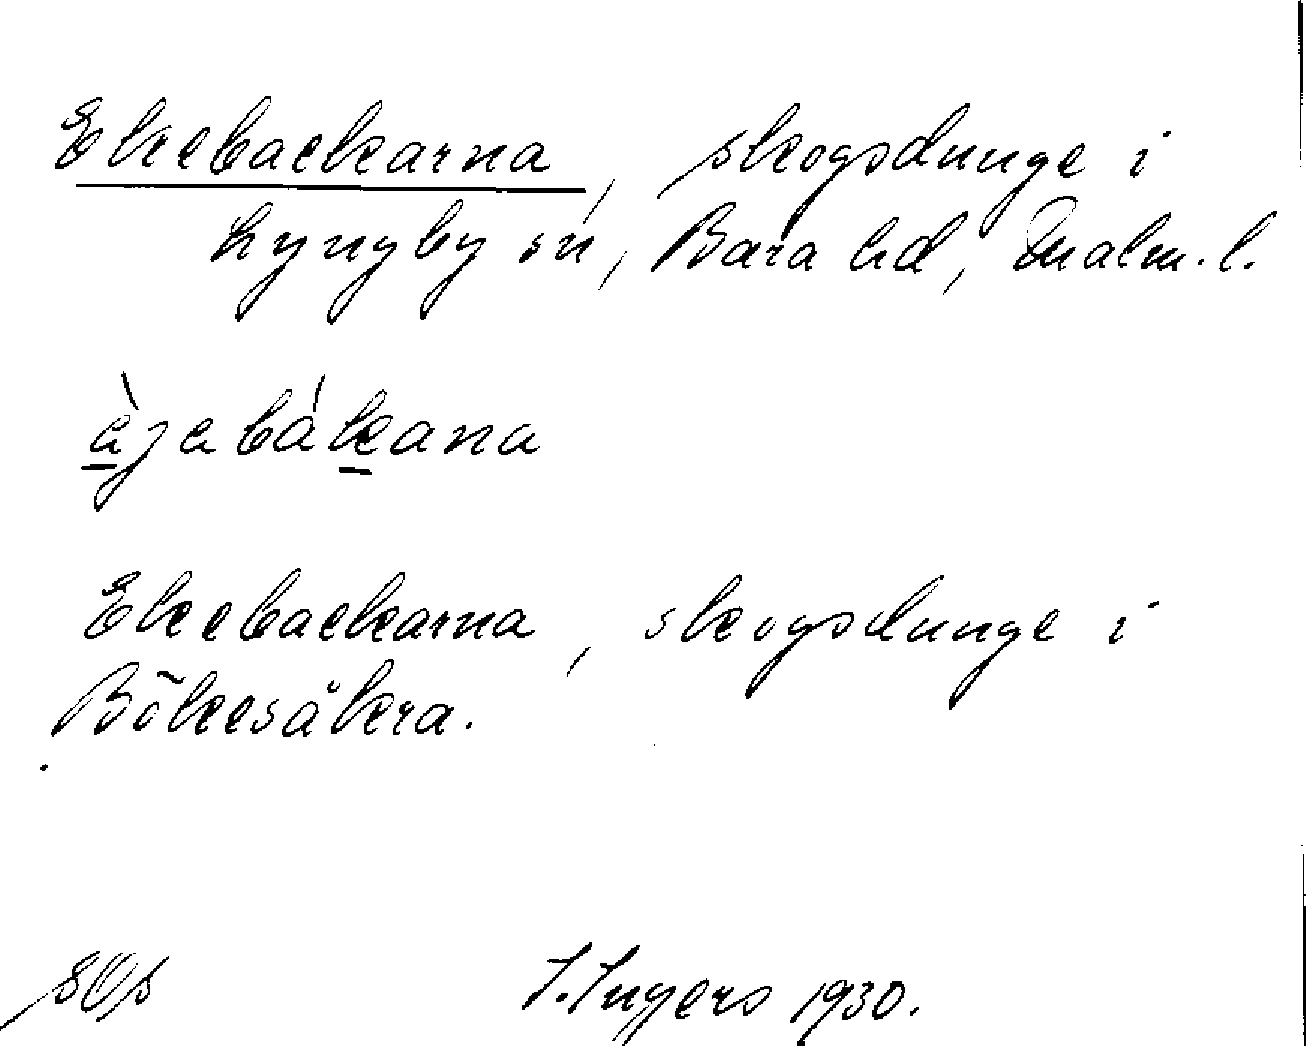 Ekebackarna, skogsdunge i
Lyngby sn, Bara hd, Malm. l.
àjabákana
Ekebackarna, skogsdunge i
Bökesåkra.
I. Ingers 1930.